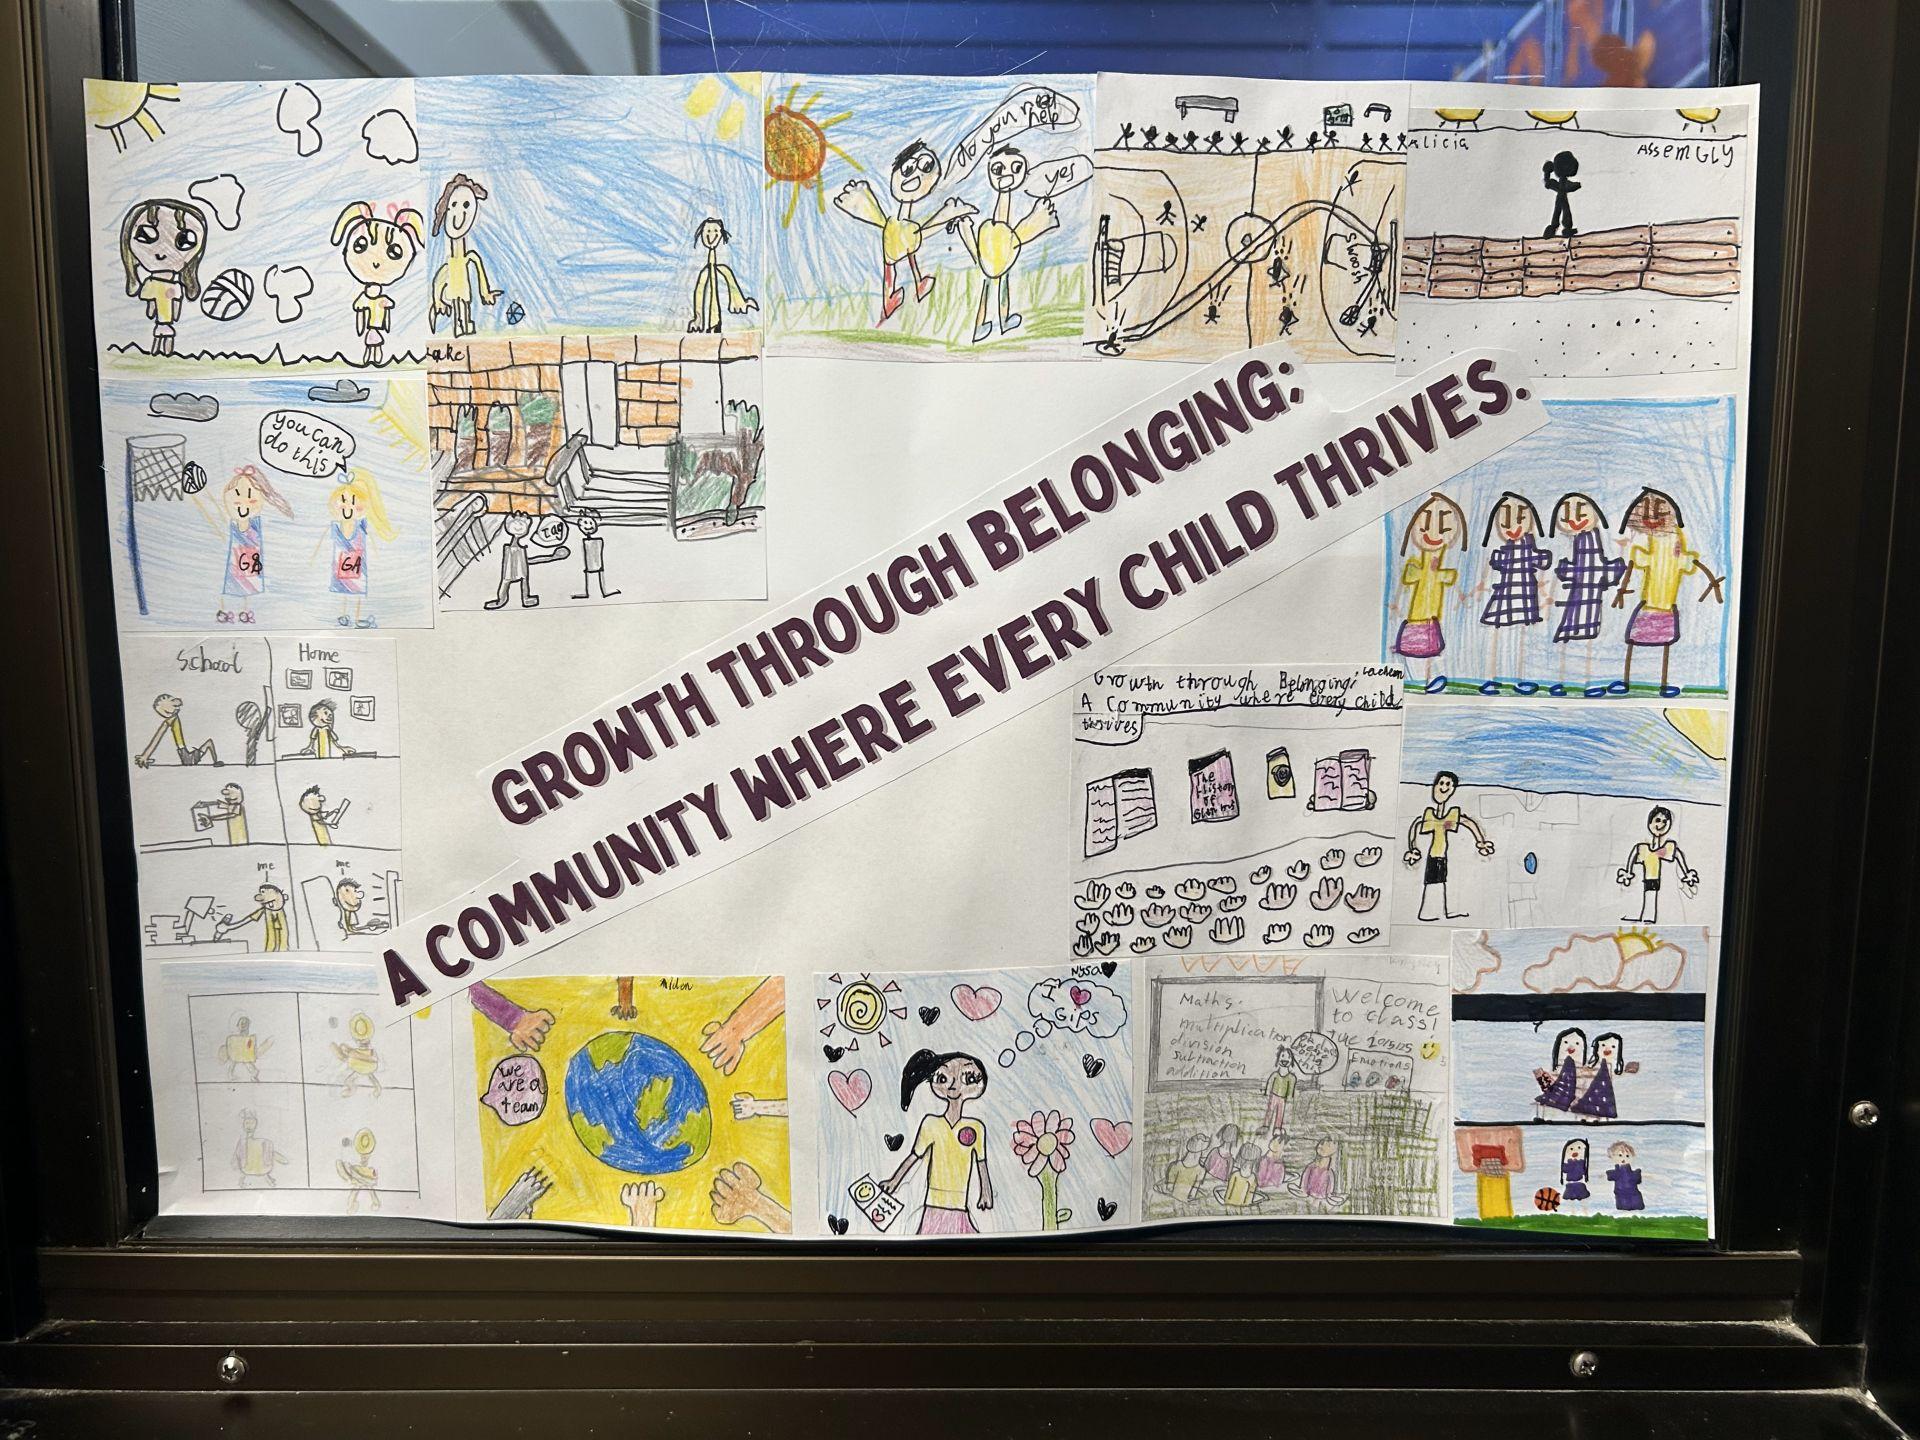 GROWTH THROUGH BELONGING:
A COMMUNITY WHERE EVERY CHILD THRIVES.
do you need
help
yes
Alicia
ASSEMGLY
You can
do this
GA
Tag
School
Home
me
me
Growth through Belonging:
A Community where every child
thrives
The
History
of
Aidan
we
are a
team
Nysa
I
Gips
Maths:
multiplication
division
subtraction
addition
Welcome
to class!
Emotions